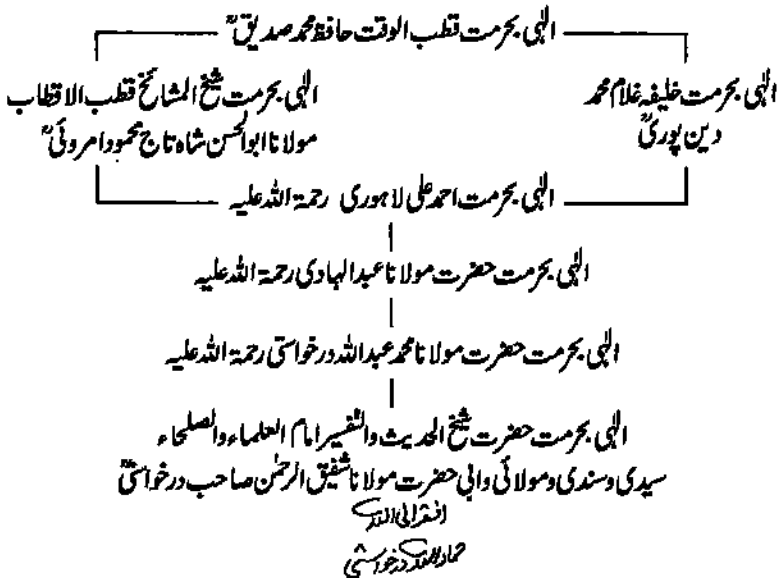 الٰہی بحرمت قطب الوقت حافظ محمد صدیقؒ
الٰہی بحرمت خلیفہ غلام محمد
دین پوریؒ
الٰہی بحرمت شیخ المشائخ قطب الاقطاب
مولانا ابوالحسن شاہ تاج محمود امروٹیؒ
الٰہی بحرمت احمد علی لاہوری رحمۃ اللہ علیہ
الٰہی بحرمت حضرت مولانا عبدالہادی رحمۃ اللہ علیہ
الٰہی بحرمت حضرت مولانا محمد عبداللہ درخواستی رحمۃ اللہ علیہ
الٰہی بحرمت حضرت شیخ الحدیث والتفسیر امام العلماء والصلحاء
سیدی وسندی ومولائی وابی حضرت مولانا شفیق الرحمٰن صاحب درخواستیؒ
افقر الی اللہ
حماد اللہ درخواستی